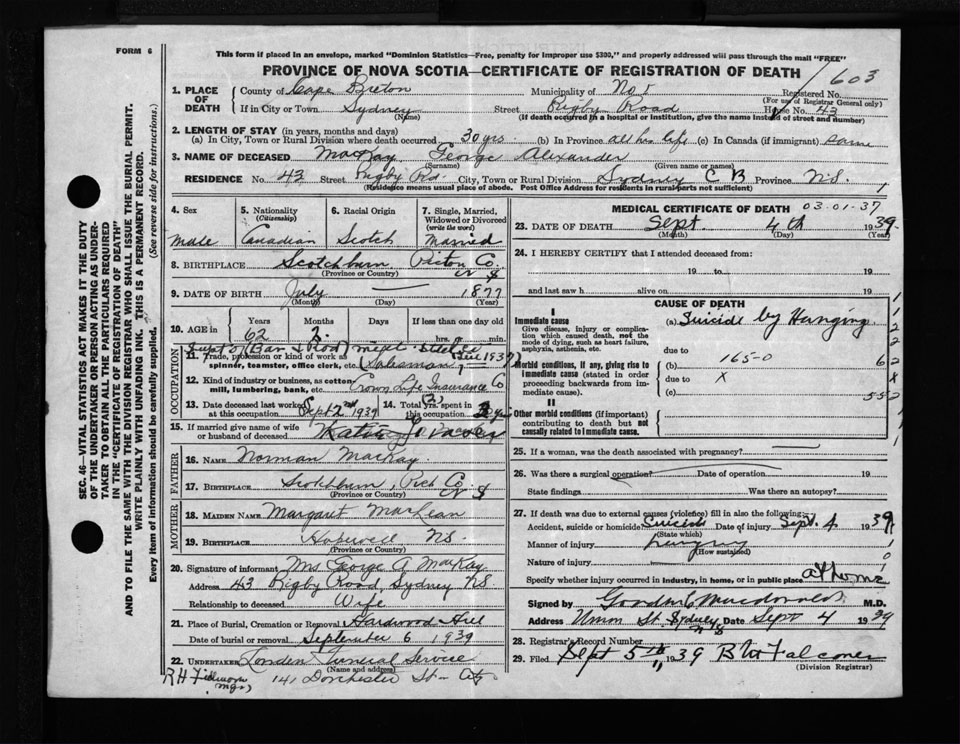 FORM 6
This form if placed in an envelope, marked "Dominion Statistics—Free, penalty for improper use $300," and properly addressed will pass through the mail "FREE"
PROVINCE OF NOVA SCOTIA—CERTIFICATE OF REGISTRATION OF DEATH
603
1. PLACE OF DEATH County of Cape Breton Municipality of No 5 Registered No.
(For use of Registrar General only)
If in City or Town Sydney Street Rigby Road House No. 43
(Name) (If death occurred in a hospital or institution, give the name instead of street and number)
2. LENGTH OF STAY (in years, months and days)
(a) In City, Town or Rural Division where death occurred 30 yrs. (b) In Province all his life (c) In Canada (if immigrant) same
3. NAME OF DECEASED MacKay George Alexander
(Surname) (Given name or names)
RESIDENCE No. 43 Street Rigby Rd. City, Town or Rural Division Sydney C B Province N.S. 1
(Residence means usual place of abode. Post Office Address for residents in rural parts not sufficient)
SEC. 46—VITAL STATISTICS ACT MAKES IT THE DUTY
OF THE UNDERTAKER OR PERSON ACTING AS UNDER-
TAKER TO OBTAIN ALL THE PARTICULARS REQUIRED
IN THE "CERTIFICATE OF REGISTRATION OF DEATH"
AND TO FILE THE SAME WITH THE DIVISION REGISTRAR WHO SHALL ISSUE THE BURIAL PERMIT.
WRITE PLAINLY WITH UNFADING INK. THIS IS A PERMANENT RECORD.
Every item of information should be carefully supplied. (See reverse side for instructions.)
4. Sex 5. Nationality (Citizenship) 6. Racial Origin 7. Single, Married, Widowed or Divorced (write the word)
male Canadian Scotch Married
8. BIRTHPLACE Scotchburn Pictou Co. N S
(Province or Country)
9. DATE OF BIRTH July 1877
(Month) (Day) (Year)
10. AGE in Years Months Days If less than one day old
62 2 hrs. or min.
OCCUPATION
11. Trade, profession or kind of work as spinner, teamster, office clerk, etc. Salesman
12. Kind of industry or business, as cotton mill, lumbering, bank, etc. Crown Life Insurance Co
13. Date deceased last worked at this occupation Sept 2nd 1939 14. Total yrs. spent in this occupation
15. If married give name of wife or husband of deceased
FATHER
16. NAME Norman MacKay
17. BIRTHPLACE Scotchburn, Pict Co. N S
(Province or Country)
MOTHER
18. MAIDEN NAME Margaret MacLean
19. BIRTHPLACE Hopewell N S.
(Province or Country)
20. Signature of informant Mrs George A MacKay
Address 43 Rigby Road, Sydney N S
Relationship to deceased Wife
21. Place of Burial, Cremation or Removal Hardwood Hill
Date of burial or removal September 6 1939
22. UNDERTAKER Funeral Service
(Name and address)
141 Dorchester St - City
R H
mgr)
MEDICAL CERTIFICATE OF DEATH 03-01-37
23. DATE OF DEATH Sept. 4th 1939
(Month) (Day) (Year)
24. I HEREBY CERTIFY that I attended deceased from:
19 to 19
and last saw h alive on 19
CAUSE OF DEATH
I
Immediate cause (a) Suicide by Hanging
Give disease, injury or complication which caused death, not the mode of dying, such as heart failure, asphyxia, asthenia, etc.
due to
Morbid conditions, if any, giving rise to immediate cause (stated in order proceeding backwards from immediate cause). (b) 165-0
due to X
(c)
II
Other morbid conditions (if important) contributing to death but not causally related to immediate cause.
25. If a woman, was the death associated with pregnancy?
26. Was there a surgical operation? Date of operation 19
State findings Was there an autopsy?
27. If death was due to external causes (violence) fill in also the following:
Accident, suicide or homicide? Suicide Date of injury Sept. 4. 1939
(State which)
Manner of injury
(How sustained)
Nature of injury
Specify whether injury occurred in industry, in home, or in public place at home
Signed by Macdonald M.D.
Address Union St. Sydney N S Date Sept 4 1939
28. Registrar's Record Number
29. Filed Sept 5th 1939 Falconer
(Division Registrar)